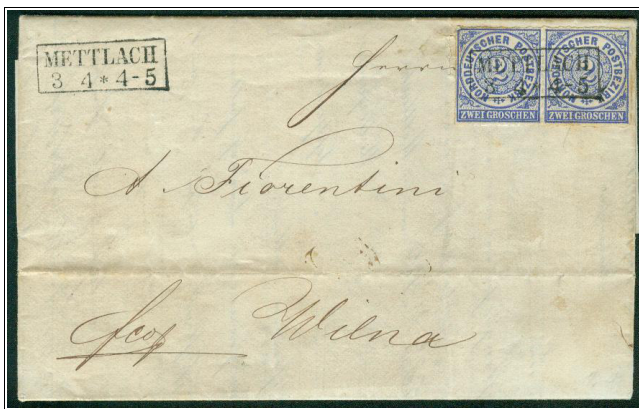 METTLACH
3 4 * 4-5
Herrn
NORDDEUTSCHER POSTBEZIRK
2
ZWEI GROSCHEN
NORDDEUTSCHER POSTBEZIRK
2
ZWEI GROSCHEN
METTLACH
3 4 * 4-5
A Fiorentini
fco
Wilna